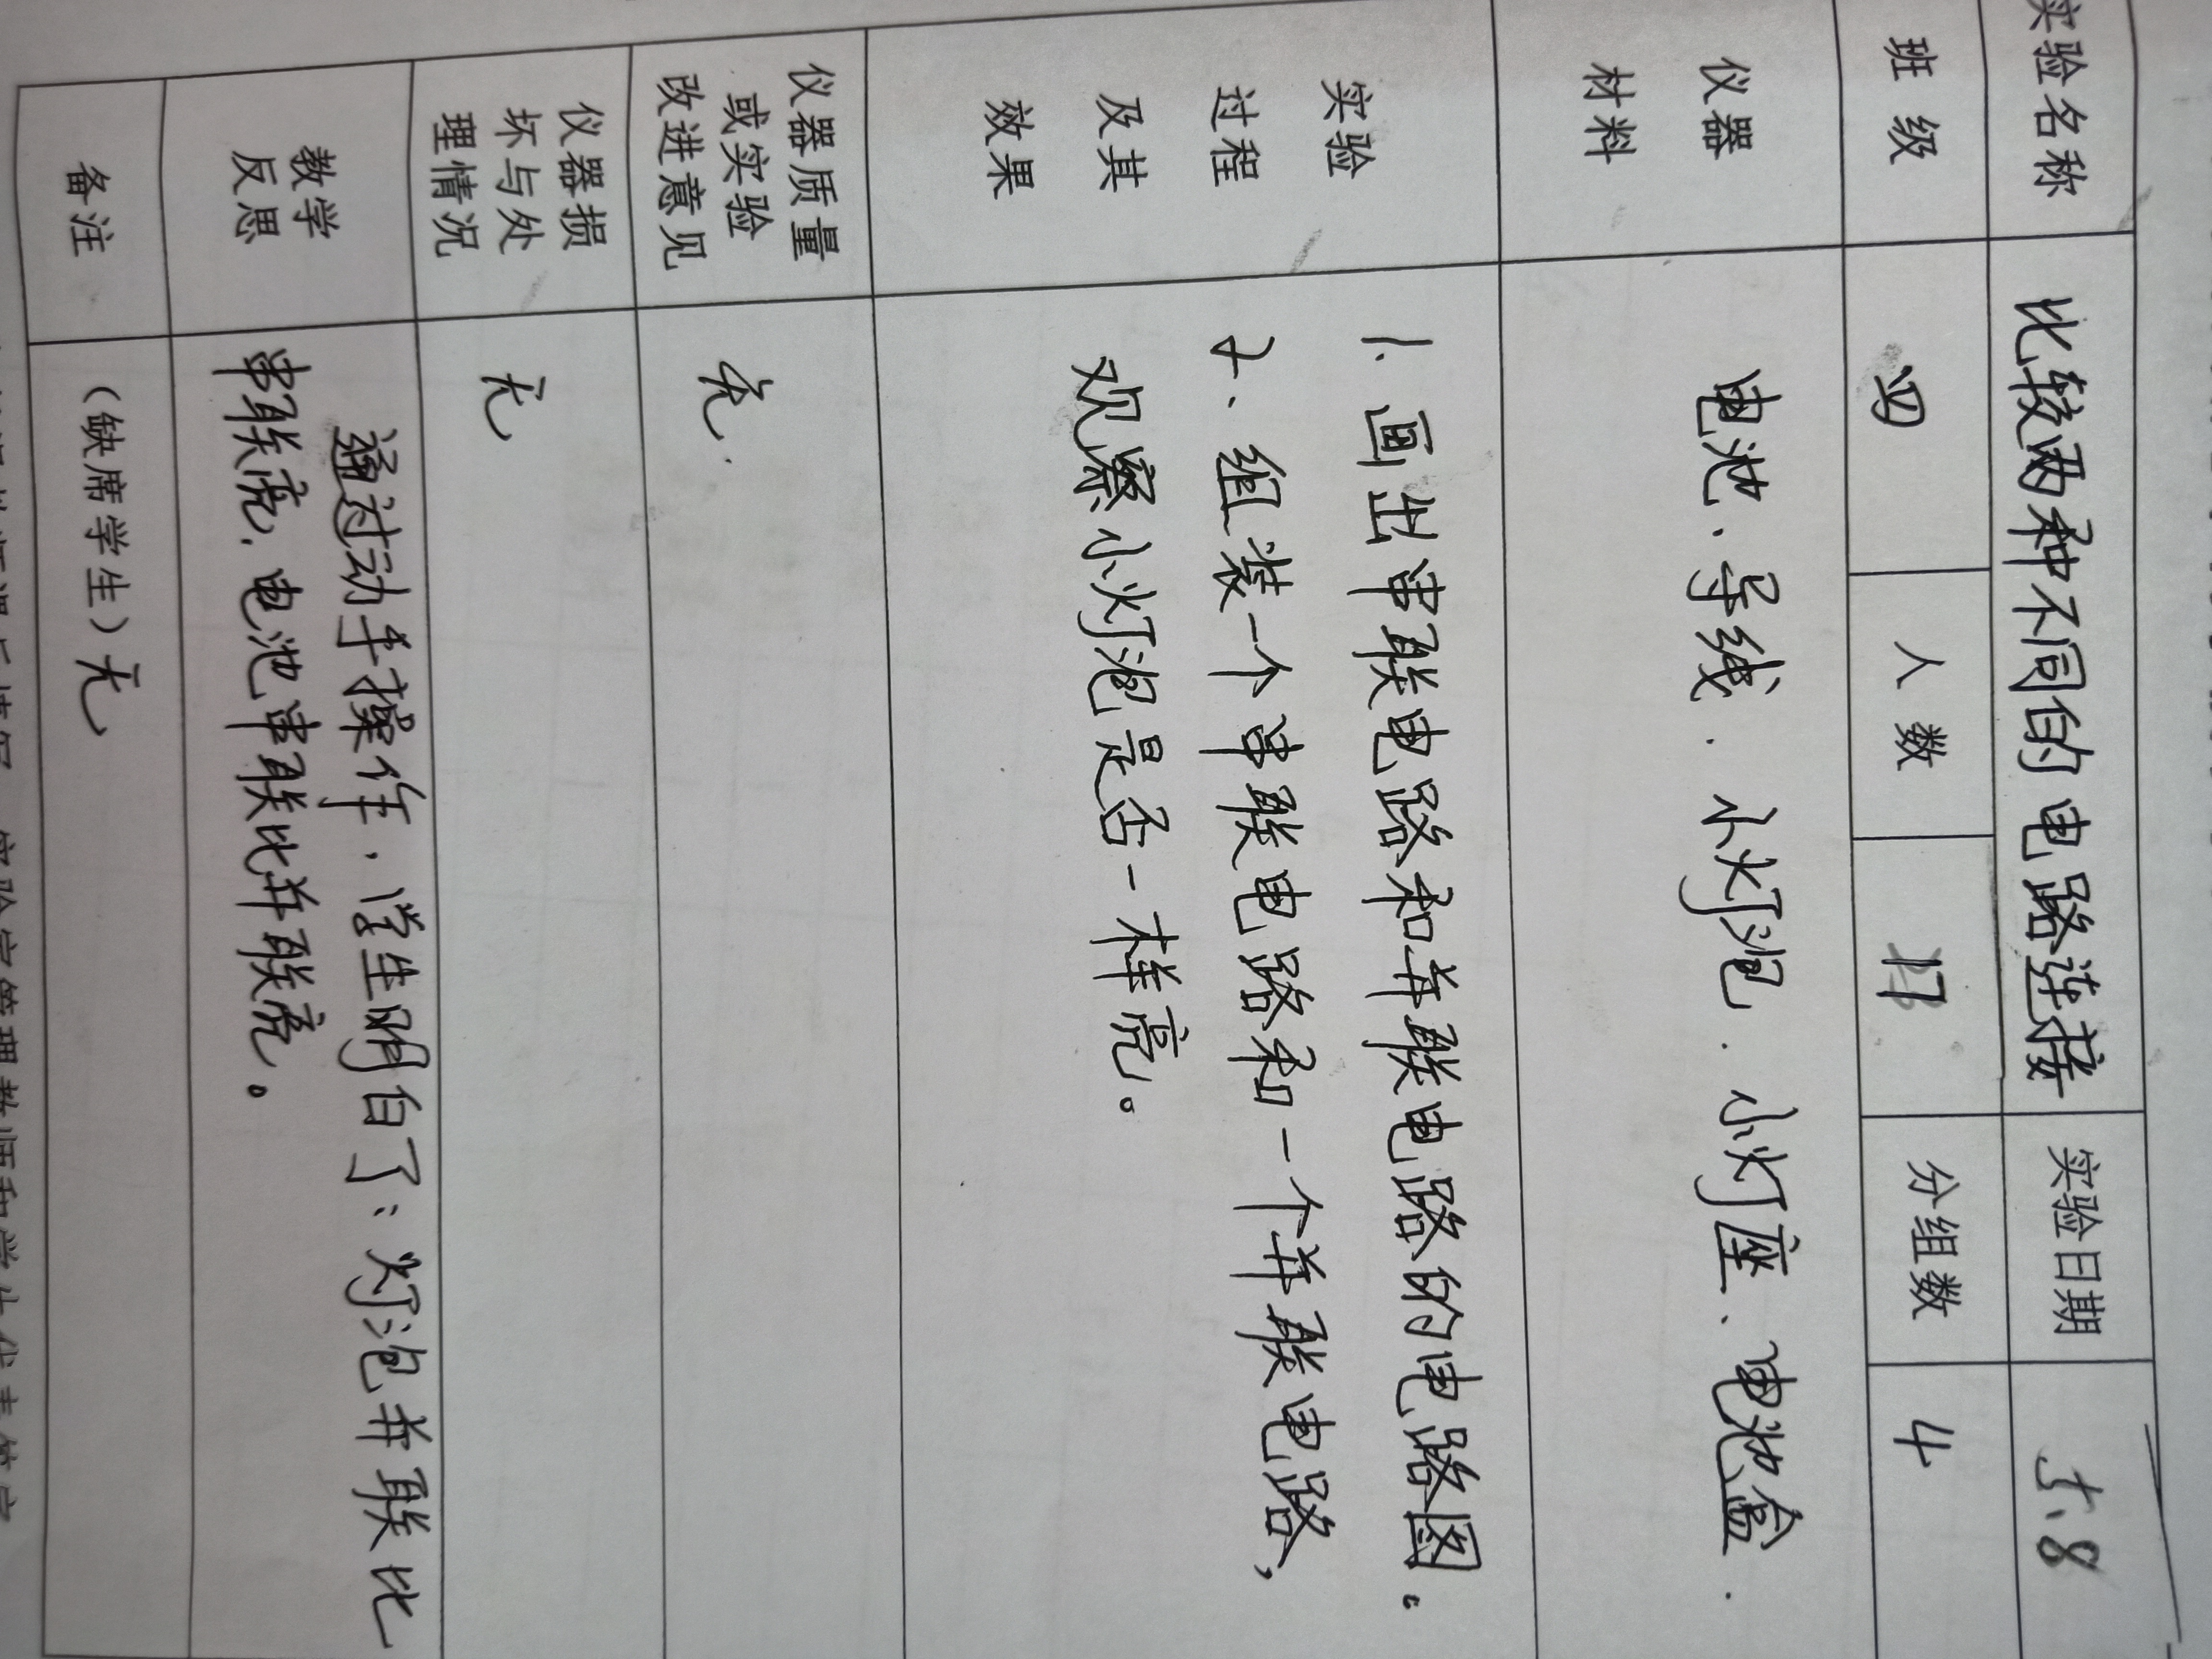 实验名称 比较两种不同的电路连接 实验日期 5.8
班级 四 人数 17 分组数 4
仪器材料 电池、导线、小灯泡、小灯座、电池盒.
实验过程及其效果
1. 画出串联电路和并联电路的电路图。
2、组装一个串联电路和一个并联电路,
观察小灯泡是否一样亮。
仪器质量或实验改进意见 无.
仪器损坏与处理情况 无
教学反思
通过动手操作,学生明白了:灯泡并联比
串联亮,电池串联比并联亮。
备注 (缺席学生)无